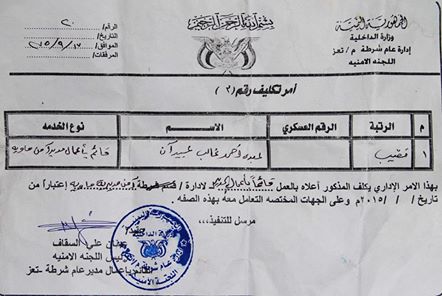 بسم الله الرحمن الرحيم
الجمهورية اليمنية
وزارة الداخلية
إدارة عام شرطة م / تعز
اللجنه الامنيه
الرقم /
التاريخ /
الموافق /
المرفقات /
أمر تكليف رقم (٢)
م الرتبة الرقم العسكري الاســـم نوع الخدمه
١ نقيب أحمد غالب قائم بأعمال مدير
بهذا الامر الإداري يكلف المذكور أعلاه بالعمل لادارة / قسم شرطة إعتباراً من
تاريخ / / ٢٠١٥م وعلى الجهات المختصه التعامل معه بهذه الصفه .
مرسل للتنفيذ،،،
عدنان علي السقاف
رئيس اللجنه الامنيه
القائم بأعمال مدير عام شرطة - تعز